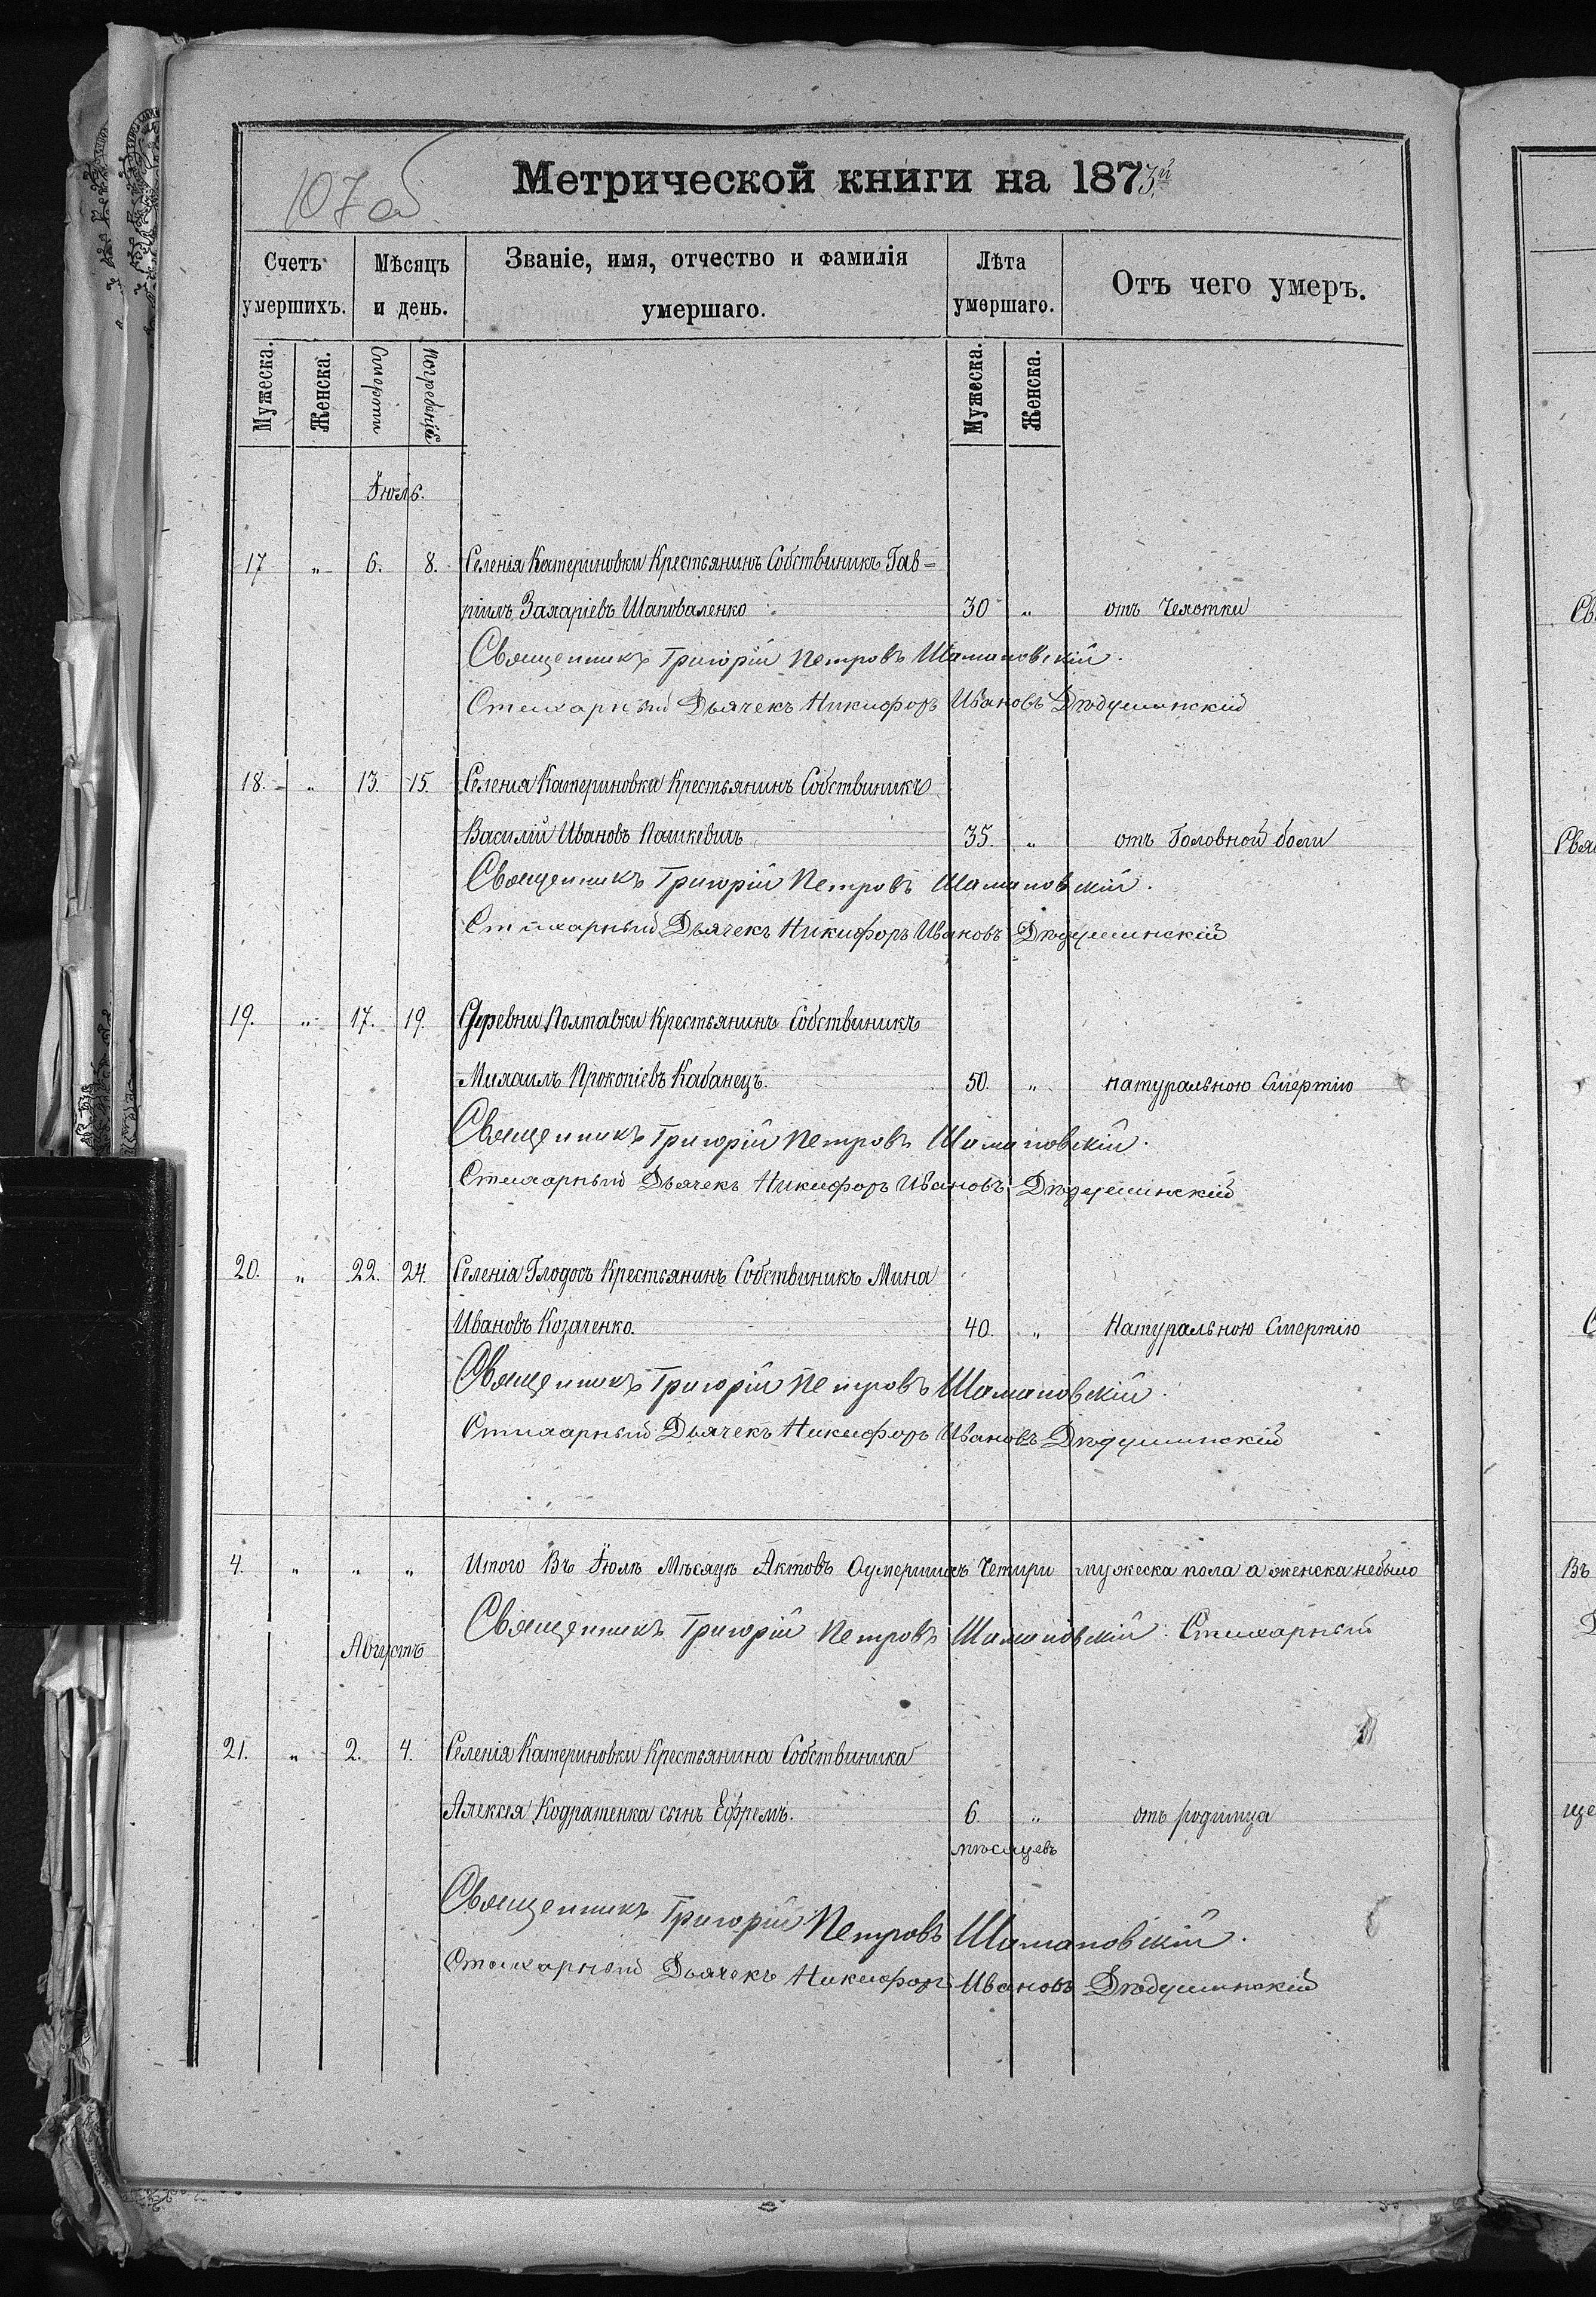 107 об
Метрической книги на 1873й
Счетъ умершихъ.
Мѣсяцъ и день.
Званіе, имя, отчество и фамилія умершаго.
Лѣта умершаго.
Отъ чего умеръ.
Мужеска. Женска. Смерти погребенія Мужеска. Женска.
Іюль.
17 „ 6. 8. Селенія Катериновки Крестьянинъ Собствиникъ Гав=
ріилъ Захаріевъ Шаповаленко 30 „ отъ Чехотки
Священникъ Григорій Петровъ Шамановскій.
Стихарный Дьячекъ Никифоръ Ивановъ
18. „ 13. 15. Селенія Катериновки Крестьянинъ Собствиникъ
Василій Ивановъ Пашкевичъ 35. „ отъ Головной боли
Священникъ Григорій Петровъ Шамановскій.
Стихарный Дьячекъ Никифоръ Ивановъ
19. „ 17. 19. Деревни Полтавки Крестьянинъ Собствиникъ
Михаилъ Прокопіевъ Кабанецъ. 50. „ натуральною Смертію
Священникъ Григорій Петровъ Шамановскій.
Стихарный Дьячекъ Никифоръ Ивановъ
20. „ 22. 24. Селенія Глодосъ Крестьянинъ Собствиникъ Мина
Ивановъ Козаченко. 40. „ Натуральною Смертію
Священникъ Григорій Петровъ Шамановскій.
Стихарный Дьячекъ Никифоръ Ивановъ
4. „ „ „ Итого Въ Іюлѣ Мѣсяцѣ Актовъ Оумершихъ Четири мужеска пола а женска небыло
Священникъ Григорій Петровъ Шамановскій. Стихарный
Августъ
21. „ 2. 4. Селенія Катериновки Крестьянина Собствиника
Алексія Кодратенка сынъ Ефремъ. 6. „ отъ родимца
мѣсяцевъ
Священникъ Григорій Петровъ Шамановскій.
Стихарный Дьячекъ Никифоръ Ивановъ